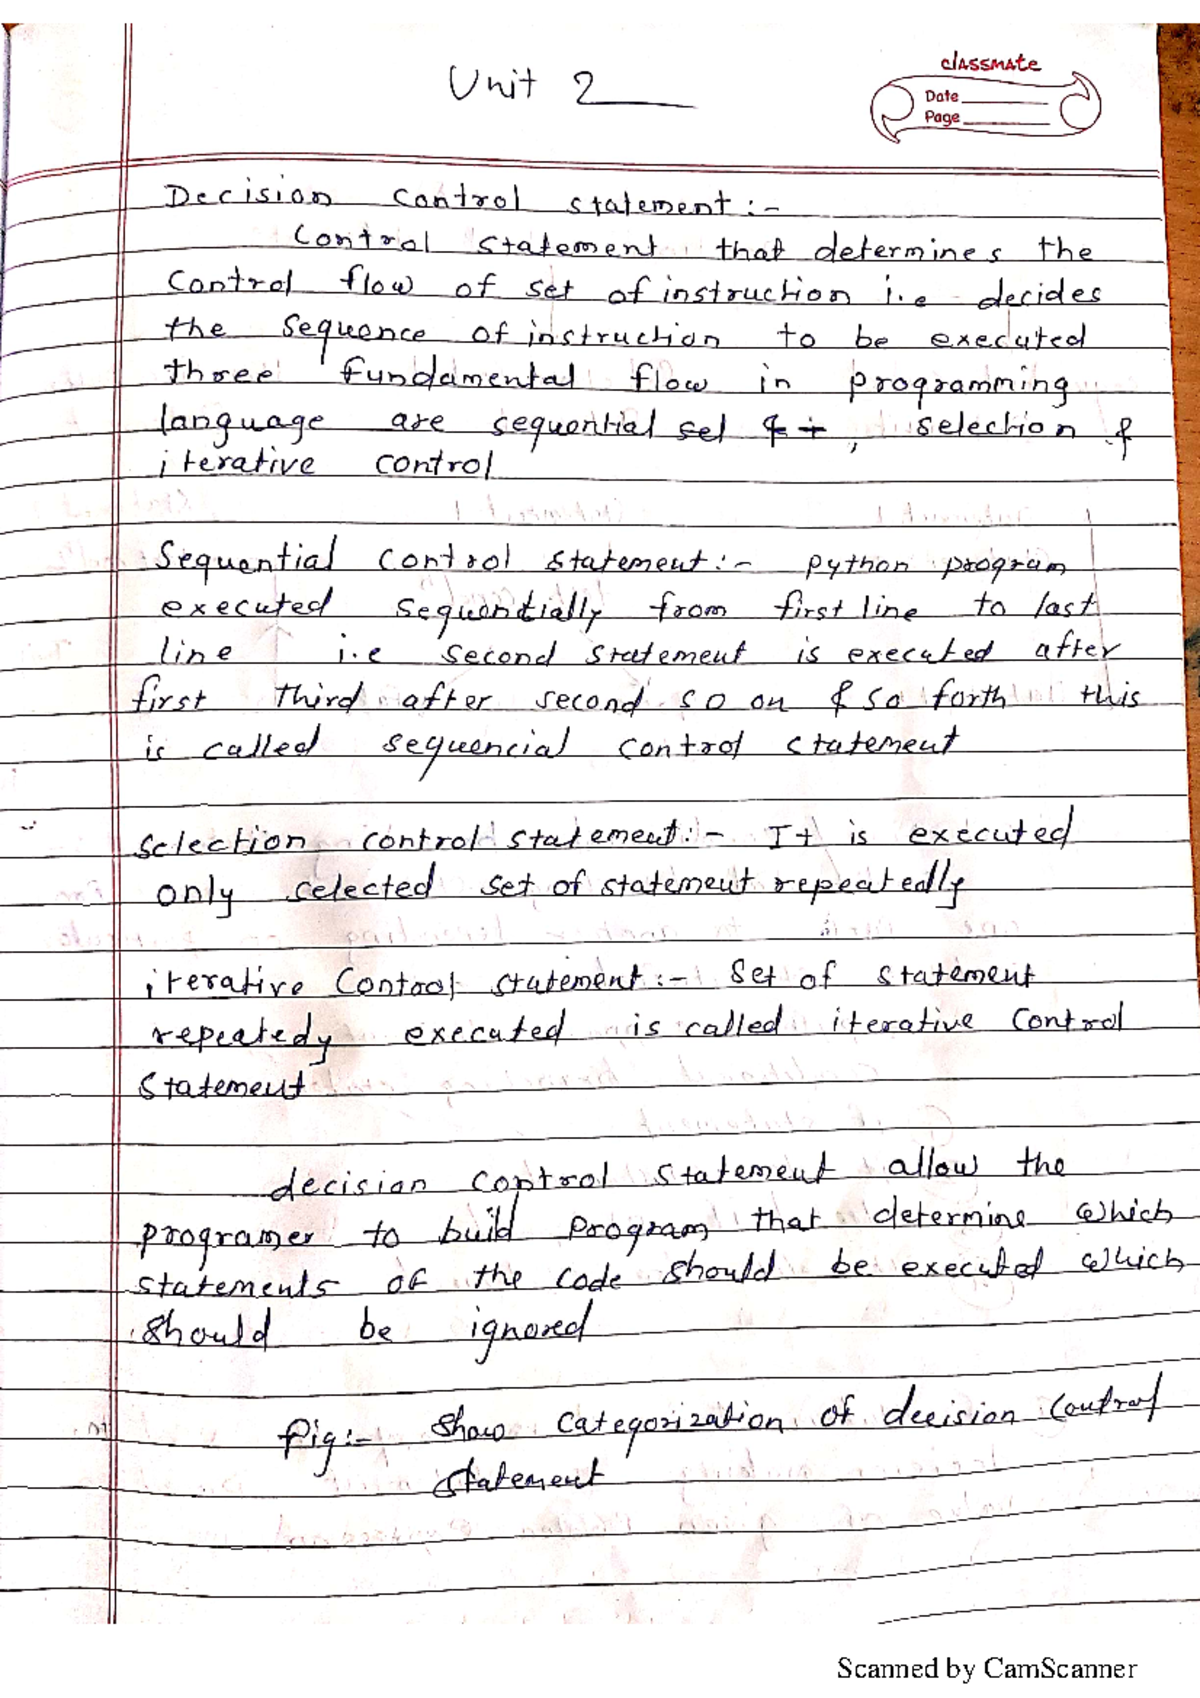 Unit 2
classmate
Date
Page
Decision control statement :-
Control statement that determines the
control flow of set of instruction i.e decides
the sequence of instruction to be executed
three fundamental flow in programming
language are sequential sel , selection &
iterative control
Sequential control statement :- python program
executed sequentially from first line to last
line i.e second statement is executed after
first third after second so on & so forth this
is called sequencial control statement
selection control statement :- It is executed
only selected set of statement repeatedly
iterative Control statement :- Set of statement
repeatedy executed is called iterative control
statement
decision control statement allow the
programer to build program that determine which
statements of the code should be executed which
should be ignored
fig :- show categorization of decision control
statement
Scanned by CamScanner